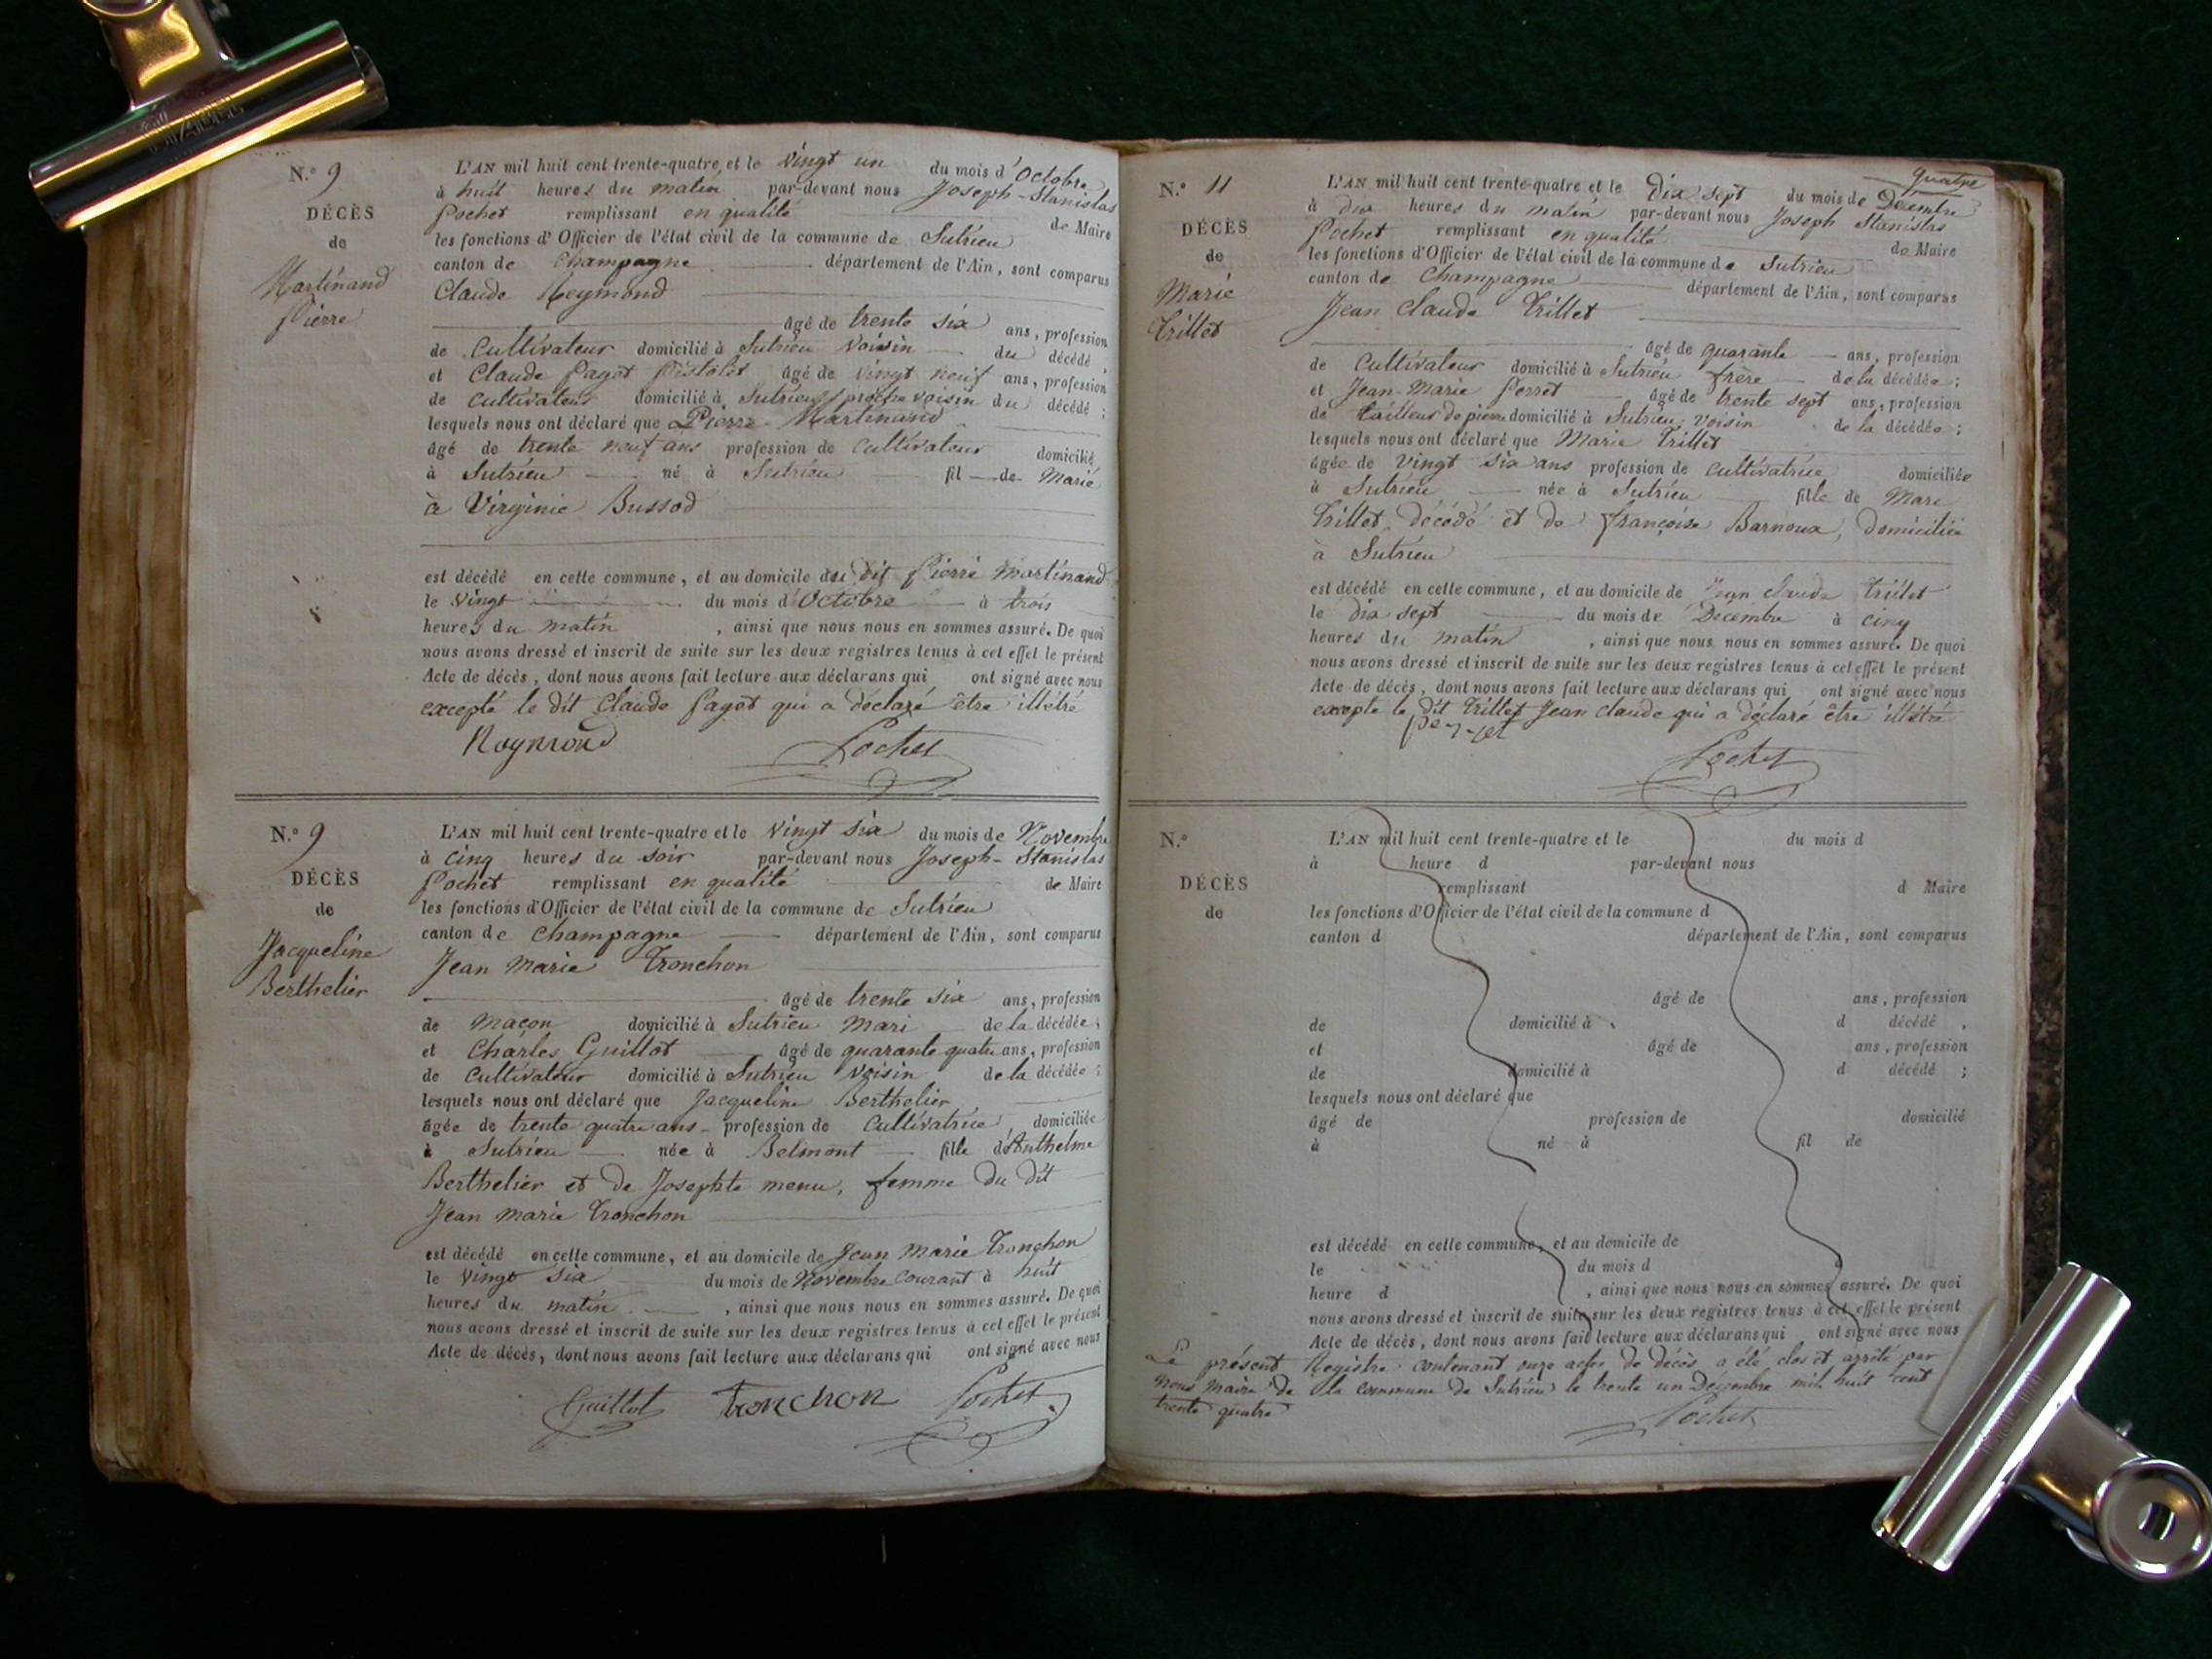 N.° 9
DÉCÈS
de
Martinand
Pierre
L'AN mil huit cent trente-quatre, et le vingt un du mois d'Octobre
à huit heures du matin par-devant nous Joseph-Stanislas
Pochet remplissant en qualité de Maire
les fonctions d'Officier de l'état civil de la commune de Sutrieu
canton de Champagne département de l'Ain, sont comparus
Claude Reymond
âgé de trente six ans, profession
de Cultivateur domicilié à Sutrieu voisin du décédé,
et Claude Pagot Pistolet âgé de vingt neuf ans, profession
de cultivateur domicilié à Sutrieu proche voisin du décédé;
lesquels nous ont déclaré que Pierre Martinand
âgé de trente neuf ans profession de cultivateur domicilié
à Sutrieu né à Sutrieu fil de Marié
à Virginie Bussod
est décédé en cette commune, et au domicile du dit Pierre Martinand
le vingt du mois d'Octobre à trois
heures du matin, ainsi que nous nous en sommes assuré. De quoi
nous avons dressé et inscrit de suite sur les deux registres tenus à cet effet le présent
Acte de décès, dont nous avons fait lecture aux déclarans qui ont signé avec nous
excepté le dit Claude Pagot qui a déclaré être illétré
Reymond Pochet
N.° 9
DÉCÈS
de
Jacqueline
Berthelier
L'AN mil huit cent trente-quatre et le vingt six du mois de Novembre
à cinq heures du soir par-devant nous Joseph-Stanislas
Pochet remplissant en qualité de Maire
les fonctions d'Officier de l'état civil de la commune de Sutrieu
canton de Champagne département de l'Ain, sont comparus
Jean Marie Tronchon
âgé de trente six ans, profession
de maçon domicilié à Sutrieu Mari de la décédée;
et Charles Guillot âgé de quarante quatre ans, profession
de cultivateur domicilié à Sutrieu voisin de la décédée;
lesquels nous ont déclaré que Jacqueline Berthelier
âgée de trente quatre ans profession de Cultivatrice, domiciliée
à Sutrieu née à Belmont fille d'Anthelme
Berthelier et de Josephte menu, femme du dit
Jean marie Tronchon
est décédé en cette commune, et au domicile de Jean Marie Tronchon
le vingt six du mois de Novembre courant à huit
heures du matin, ainsi que nous nous en sommes assuré. De quoi
nous avons dressé et inscrit de suite sur les deux registres tenus à cet effet le présent
Acte de décès, dont nous avons fait lecture aux déclarans qui ont signé avec nous
Guillot Tronchon Pochet
quatre
N.° 11
DÉCÈS
de
Marie
Trillet
L'AN mil huit cent trente-quatre et le Dix sept du mois de Decembre
à dix heures du matin par-devant nous Joseph Stanislas
Pochet remplissant en qualité de Maire
les fonctions d'Officier de l'état civil de la commune de Sutrieu
canton de Champagne département de l'Ain, sont comparus
Jean Claude Trillet
âgé de quarante ans, profession
de Cultivateur domicilié à Sutrieu frère de la décédée;
et Jean-Marie Perret âgé de trente sept ans, profession
de tailleur de pierre domicilié à Sutrieu, voisin de la décédée;
lesquels nous ont déclaré que Marie Trillet
âgée de vingt six ans profession de cultivatrice domiciliée
à Sutrieu née à Sutrieu fille de Marc
Trillet, décédé et de françoise Barnoux, domiciliée
à Sutrieu
est décédé en cette commune, et au domicile de Jean Claude Trillet
le dix sept du mois de Décembre à cinq
heures du matin, ainsi que nous nous en sommes assuré. De quoi
nous avons dressé et inscrit de suite sur les deux registres tenus à cet effet le présent
Acte de décès, dont nous avons fait lecture aux déclarans qui ont signé avec nous
excepte le dit Trillet Jean claude qui a déclaré être illétré
perret
Pochet
N.°
DÉCÈS
de
L'AN mil huit cent trente-quatre et le du mois d
à heure d par-devant nous
remplissant d Maire
les fonctions d'Officier de l'état civil de la commune d
canton d département de l'Ain, sont comparus
âgé de ans, profession
de domicilié à d décédé,
et âgé de ans, profession
de domicilié à d décédé;
lesquels nous ont déclaré que
âgé de profession de domicilié
à né à fil de
est décédé en cette commune, et au domicile de
le du mois d
heure d, ainsi que nous nous en sommes assuré. De quoi
nous avons dressé et inscrit de suite sur les deux registres tenus à cet effet le présent
Acte de décès, dont nous avons fait lecture aux déclarans qui ont signé avec nous
Le présent Registre contenant onze actes de décès a été clos et arrêté par
Nous Maire de la commune de Sutrieu le trente un Décembre mil huit cent
trente quatre
Pochet